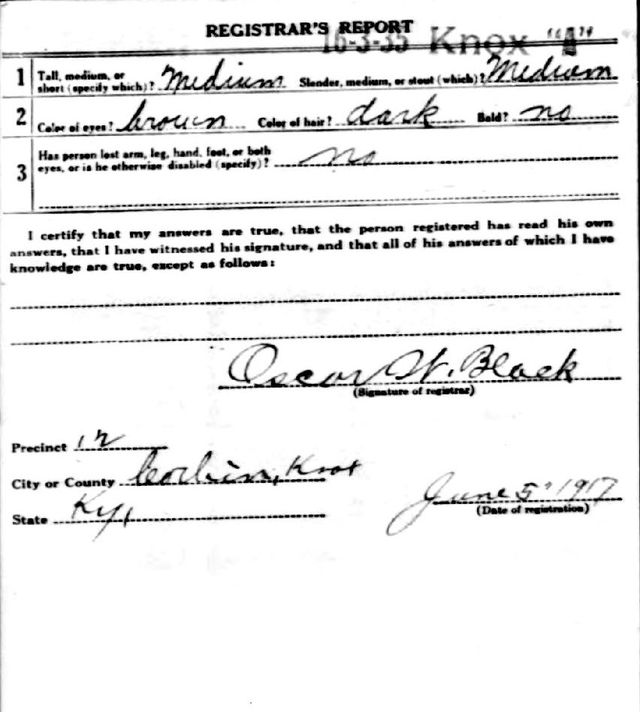 REGISTRAR'S REPORT
16-3-35 Knox "A"
1 Tall, medium, or short (specify which)? Medium Slender, medium, or stout (which)? Medium
2 Color of eyes? brown Color of hair? dark Bald? no
3 Has person lost arm, leg, hand, foot, or both eyes, or is he otherwise disabled (specify)? no
I certify that my answers are true, that the person registered has read his own
answers, that I have witnessed his signature, and that all of his answers of which I have
knowledge are true, except as follows:
Oscar W. Black
(Signature of registrar)
Precinct 12
City or County Corbin, Knox
State Ky,
June 5" 1917
(Date of registration)